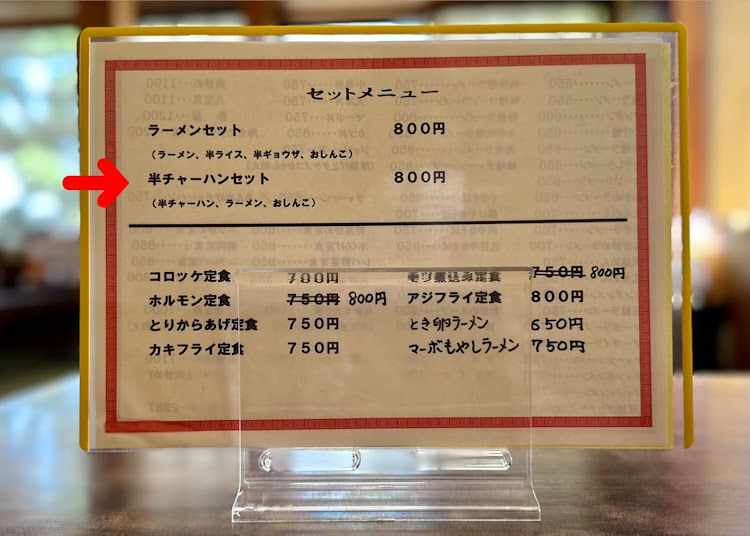 セットメニュー
ラーメンセット 800円
(ラーメン、半ライス、半ギョウザ、おしんこ)
半チャーハンセット 800円
(半チャーハン、ラーメン、おしんこ)
コロッケ定食 700円 モツ煮込み定食 750円 800円
ホルモン定食 750円 800円 アジフライ定食 800円
とりからあげ定食 750円 とき卵ラーメン 650円
カキフライ定食 750円 マーボもやしラーメン 750円